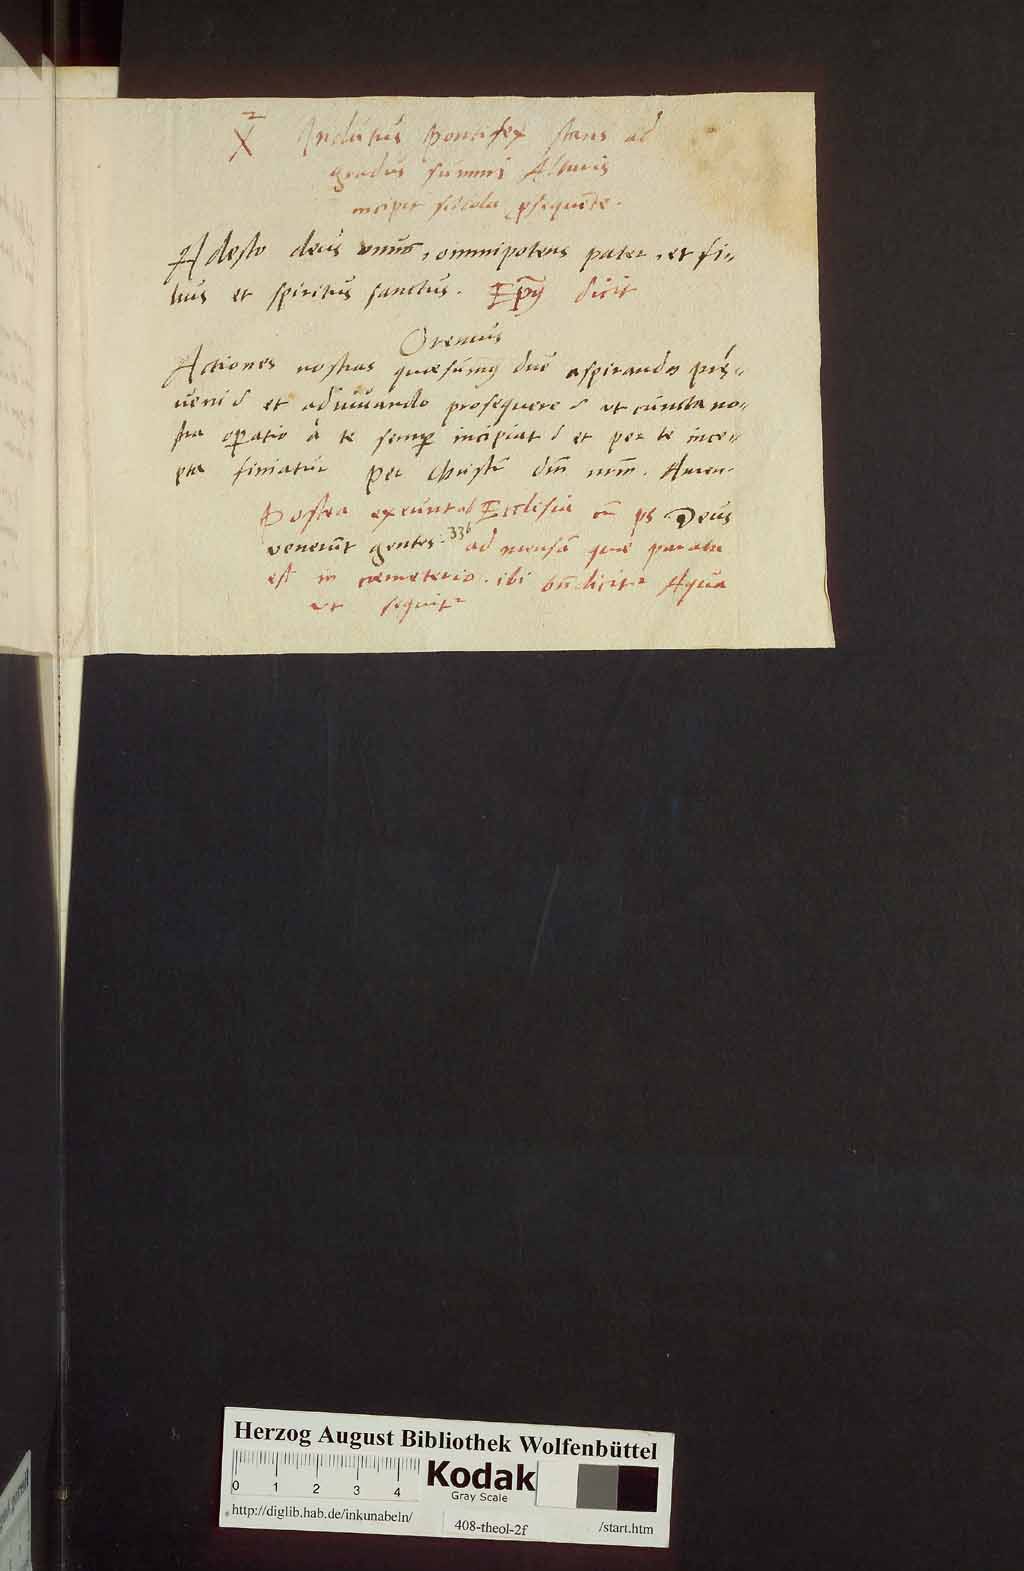 X 2 Indutus Pontifex stans ad
gradus summi Altaris
incipit scᵒla ꝓsequẽte.
Adesto deus vnus, omnipotens pater, et fi=
lius et spiritus sanctus. Ep̃us dicit
Oremus
Actiones nostras quæsumꝰ dñe aspirando præ=
ueni et adiuuando prosequere vt cuncta no=
stra oꝑatio à te semꝑ incipiat et per te ince=
pta finiatur Per Christũ dñm nrm̃. Amen.
Postea exeunt ad Ecclesia cũ ps Deus
venerũt gentes. 336 ad mensã que parata
est in cœmeterio. ibi bñdicitr Aqua
vt sequitr
Herzog August Bibliothek Wolfenbüttel
0 1 2 3 4
Kodak
Gray Scale
http://diglib.hab.de/inkunabeln/ 408-theol-2f /start.htm